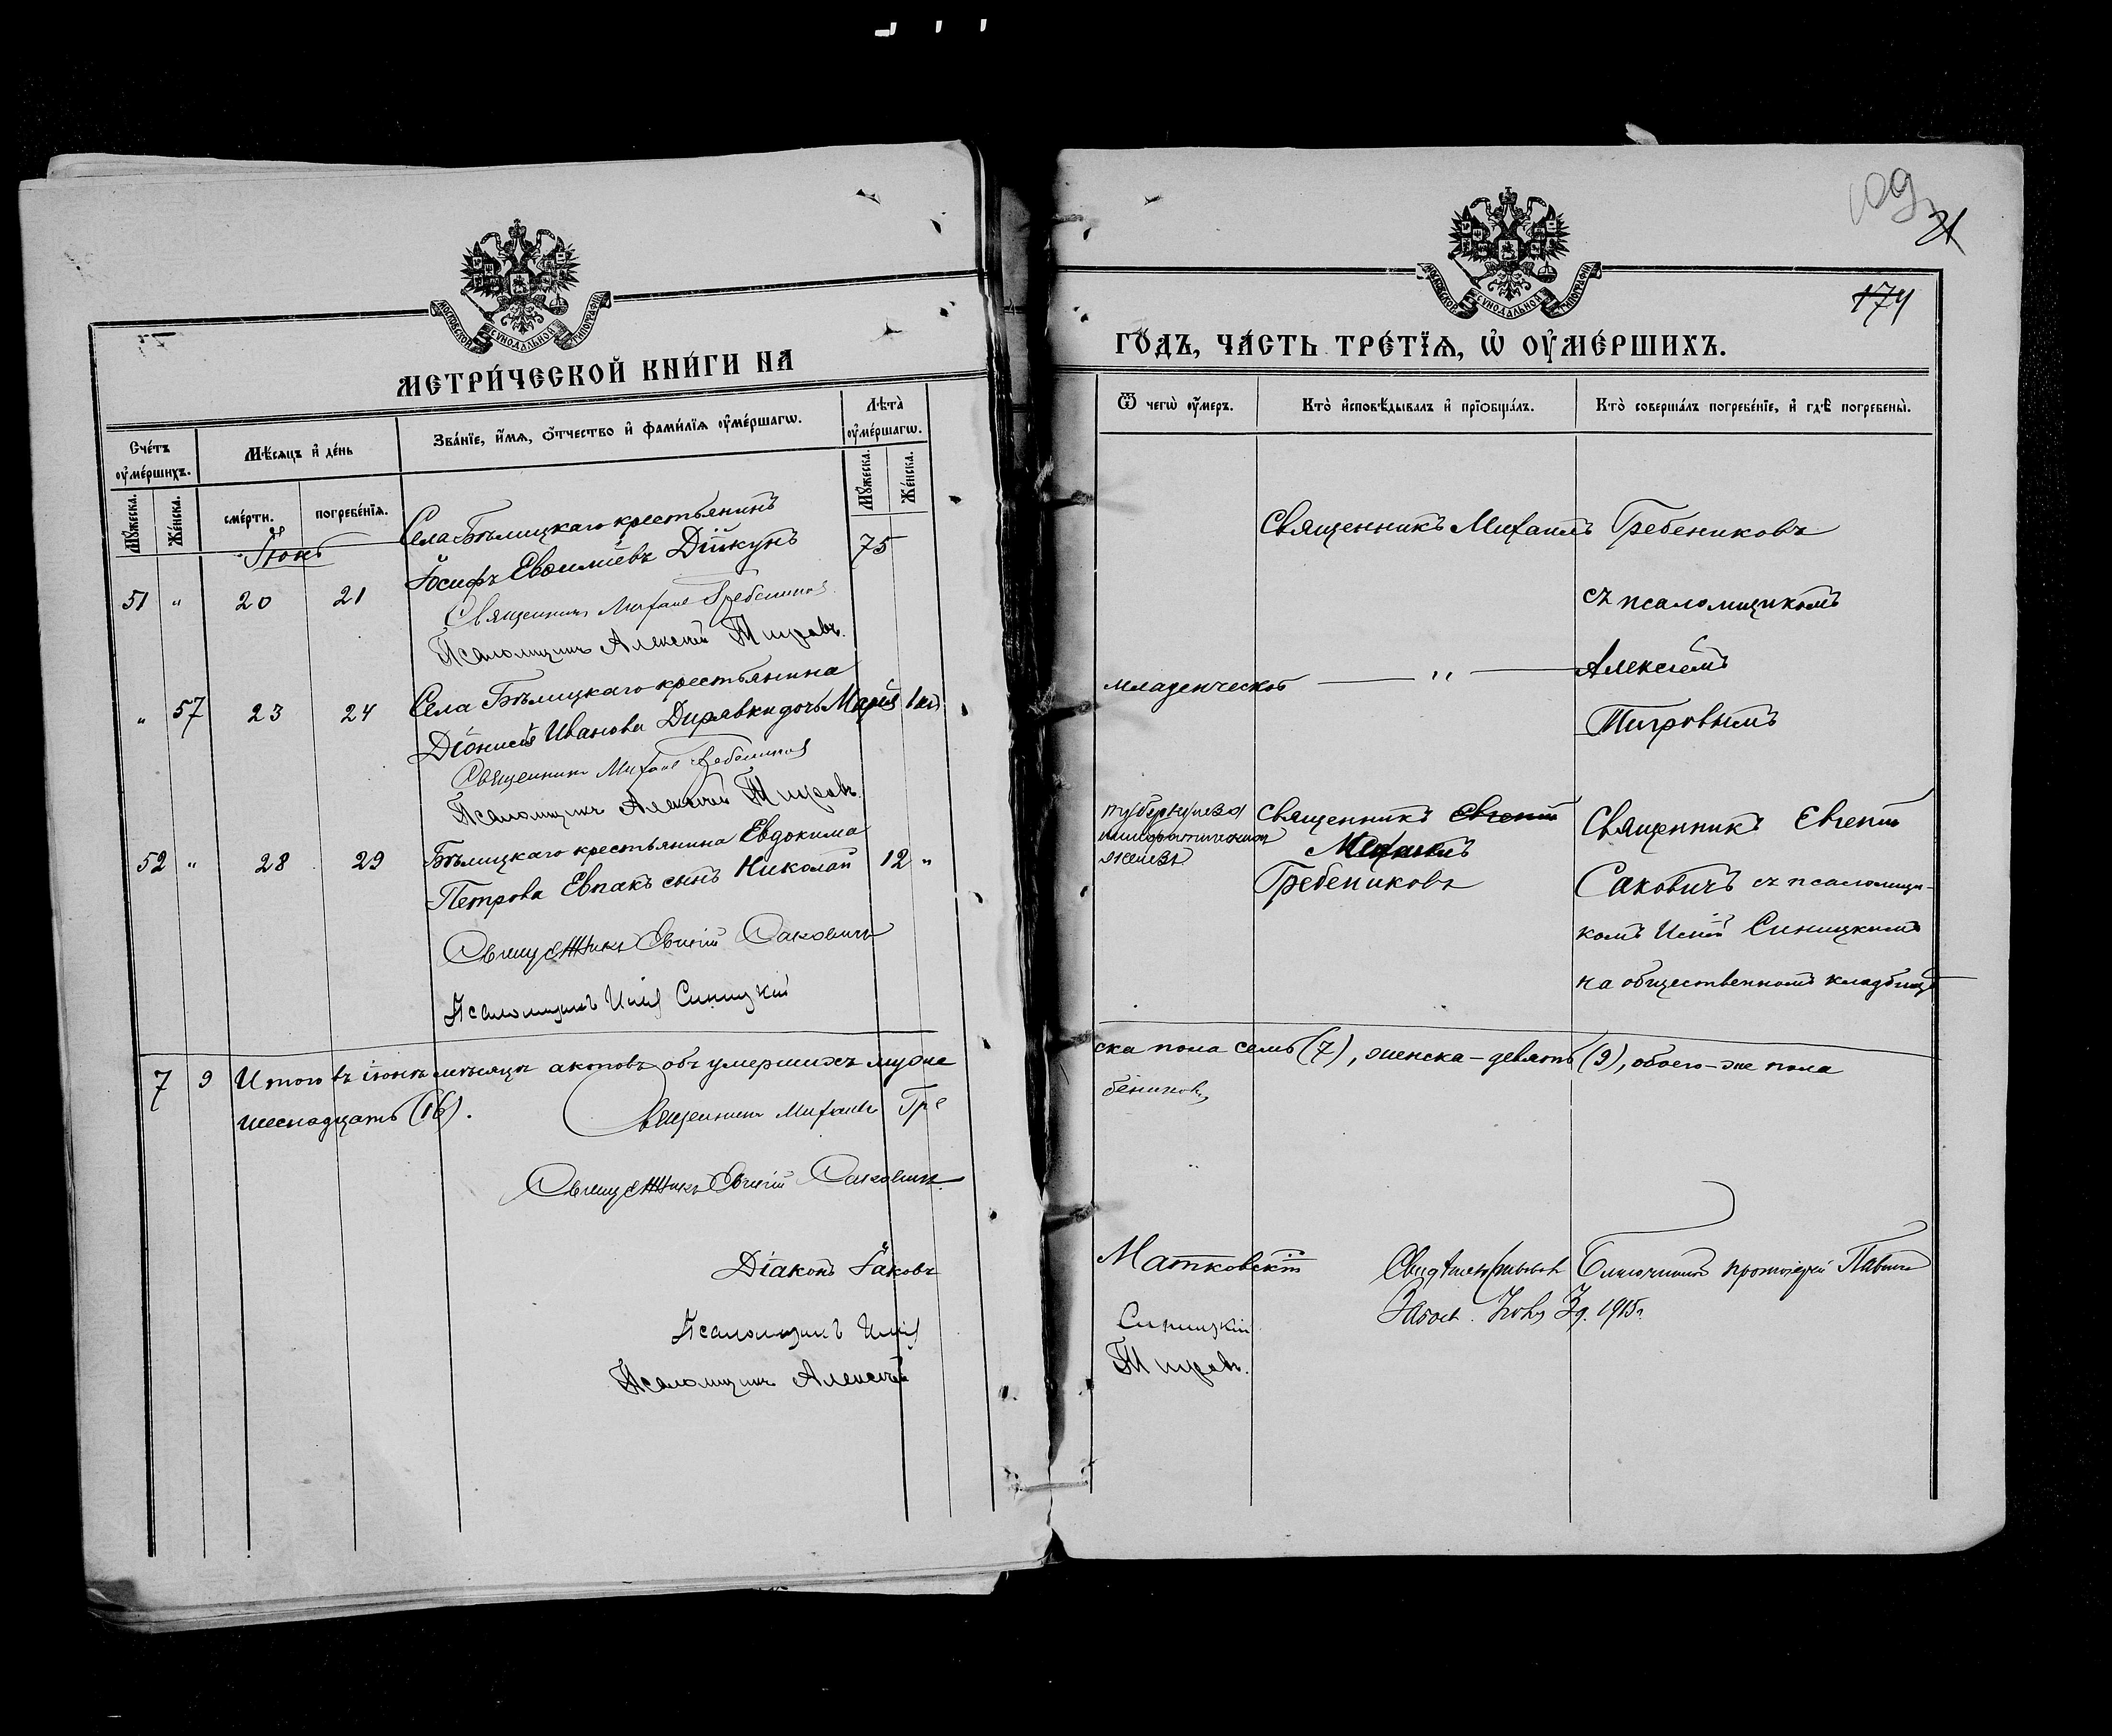 109
21
174
МОСКОВСКОЙ СѴНОДАЛЬНОЙ ТИПОГРАФІИ
МЕТРИ́ЧЕСКОЙ КНИ́ГИ НА
Сче́тъ ᲂу҆ме́ршихъ.
Мѣ́сяцъ и҆ де́нь
Зва́нїе, и҆́мѧ, ѻ҆́тчество и҆ фами́лїѧ ᲂу҆ме́ршагѡ.
Лѣта̀ ᲂу҆ме́ршагѡ.
Мꙋ́жеска.
Же́нска.
сме́рти.
погребе́нїѧ.
Мꙋ́жеска.
Же́нска.
Іюнь
Села Бѣлицкаго крестьянинъ
51 " 20 21 Іосифъ Евѳиміевъ Дикунъ 75
Священникъ Михаилъ Гребениковъ
Псаломщикъ Алексій Тигровъ.
Села Бѣлицкаго крестьянина
" 57 23 24 Діонисія Иванова Дирявки дочь Марія
Священникъ Михаилъ Гребениковъ
Псаломщикъ Алексій Тигровъ.
Бѣлицкаго крестьянина Евдокима
52 " 28 29 Петрова Евпакъ сынъ Николай 12 "
Священникъ Евгеній Саковичъ
Псаломщикъ Илія Синицкій
7 9 Итого въ іюнѣ мѣсяцѣ актовъ объ умершихъ муже
шеснадцать (16). Священникъ Михаилъ Гре
Священникъ Евгеній Саковичъ.
Діаконъ Іаковъ
Псаломщикъ Илія
Псаломщикъ Алексій
МОСКОВСКОЙ СѴНОДАЛЬНОЙ ТИПОГРАФІИ
ГО́ДЪ, ЧА́СТЬ ТРЕ́ТЇѦ, Ѡ҆ ОУ҆МЕ́РШИХЪ.
Ѿ чегѡ̀ ᲂу҆́меръ.
Кто̀ и҆сповѣ́дывалъ и҆ прїѡбща́лъ.
Кто̀ соверша́лъ погребе́нїе, и҆ гдѣ̀ погребены̀.
Священникъ Михаилъ Гребениковъ
съ псаломщикомъ
младенческой " Алексіемъ
Тигровымъ
туберкулеза
железъ
Священникъ Евгеній
Михаилъ
Гребениковъ
Священникъ Евгеній
Саковичъ съ псаломщи-
комъ Иліей Синицкимъ
на общественномъ кладбищѣ
ска пола семь (7), женска - девять (9), обоего-же пола
бениковъ
Матковскій
Синицкій
Тигровъ.
Благочинный протоіерей Павелъ
1915г.